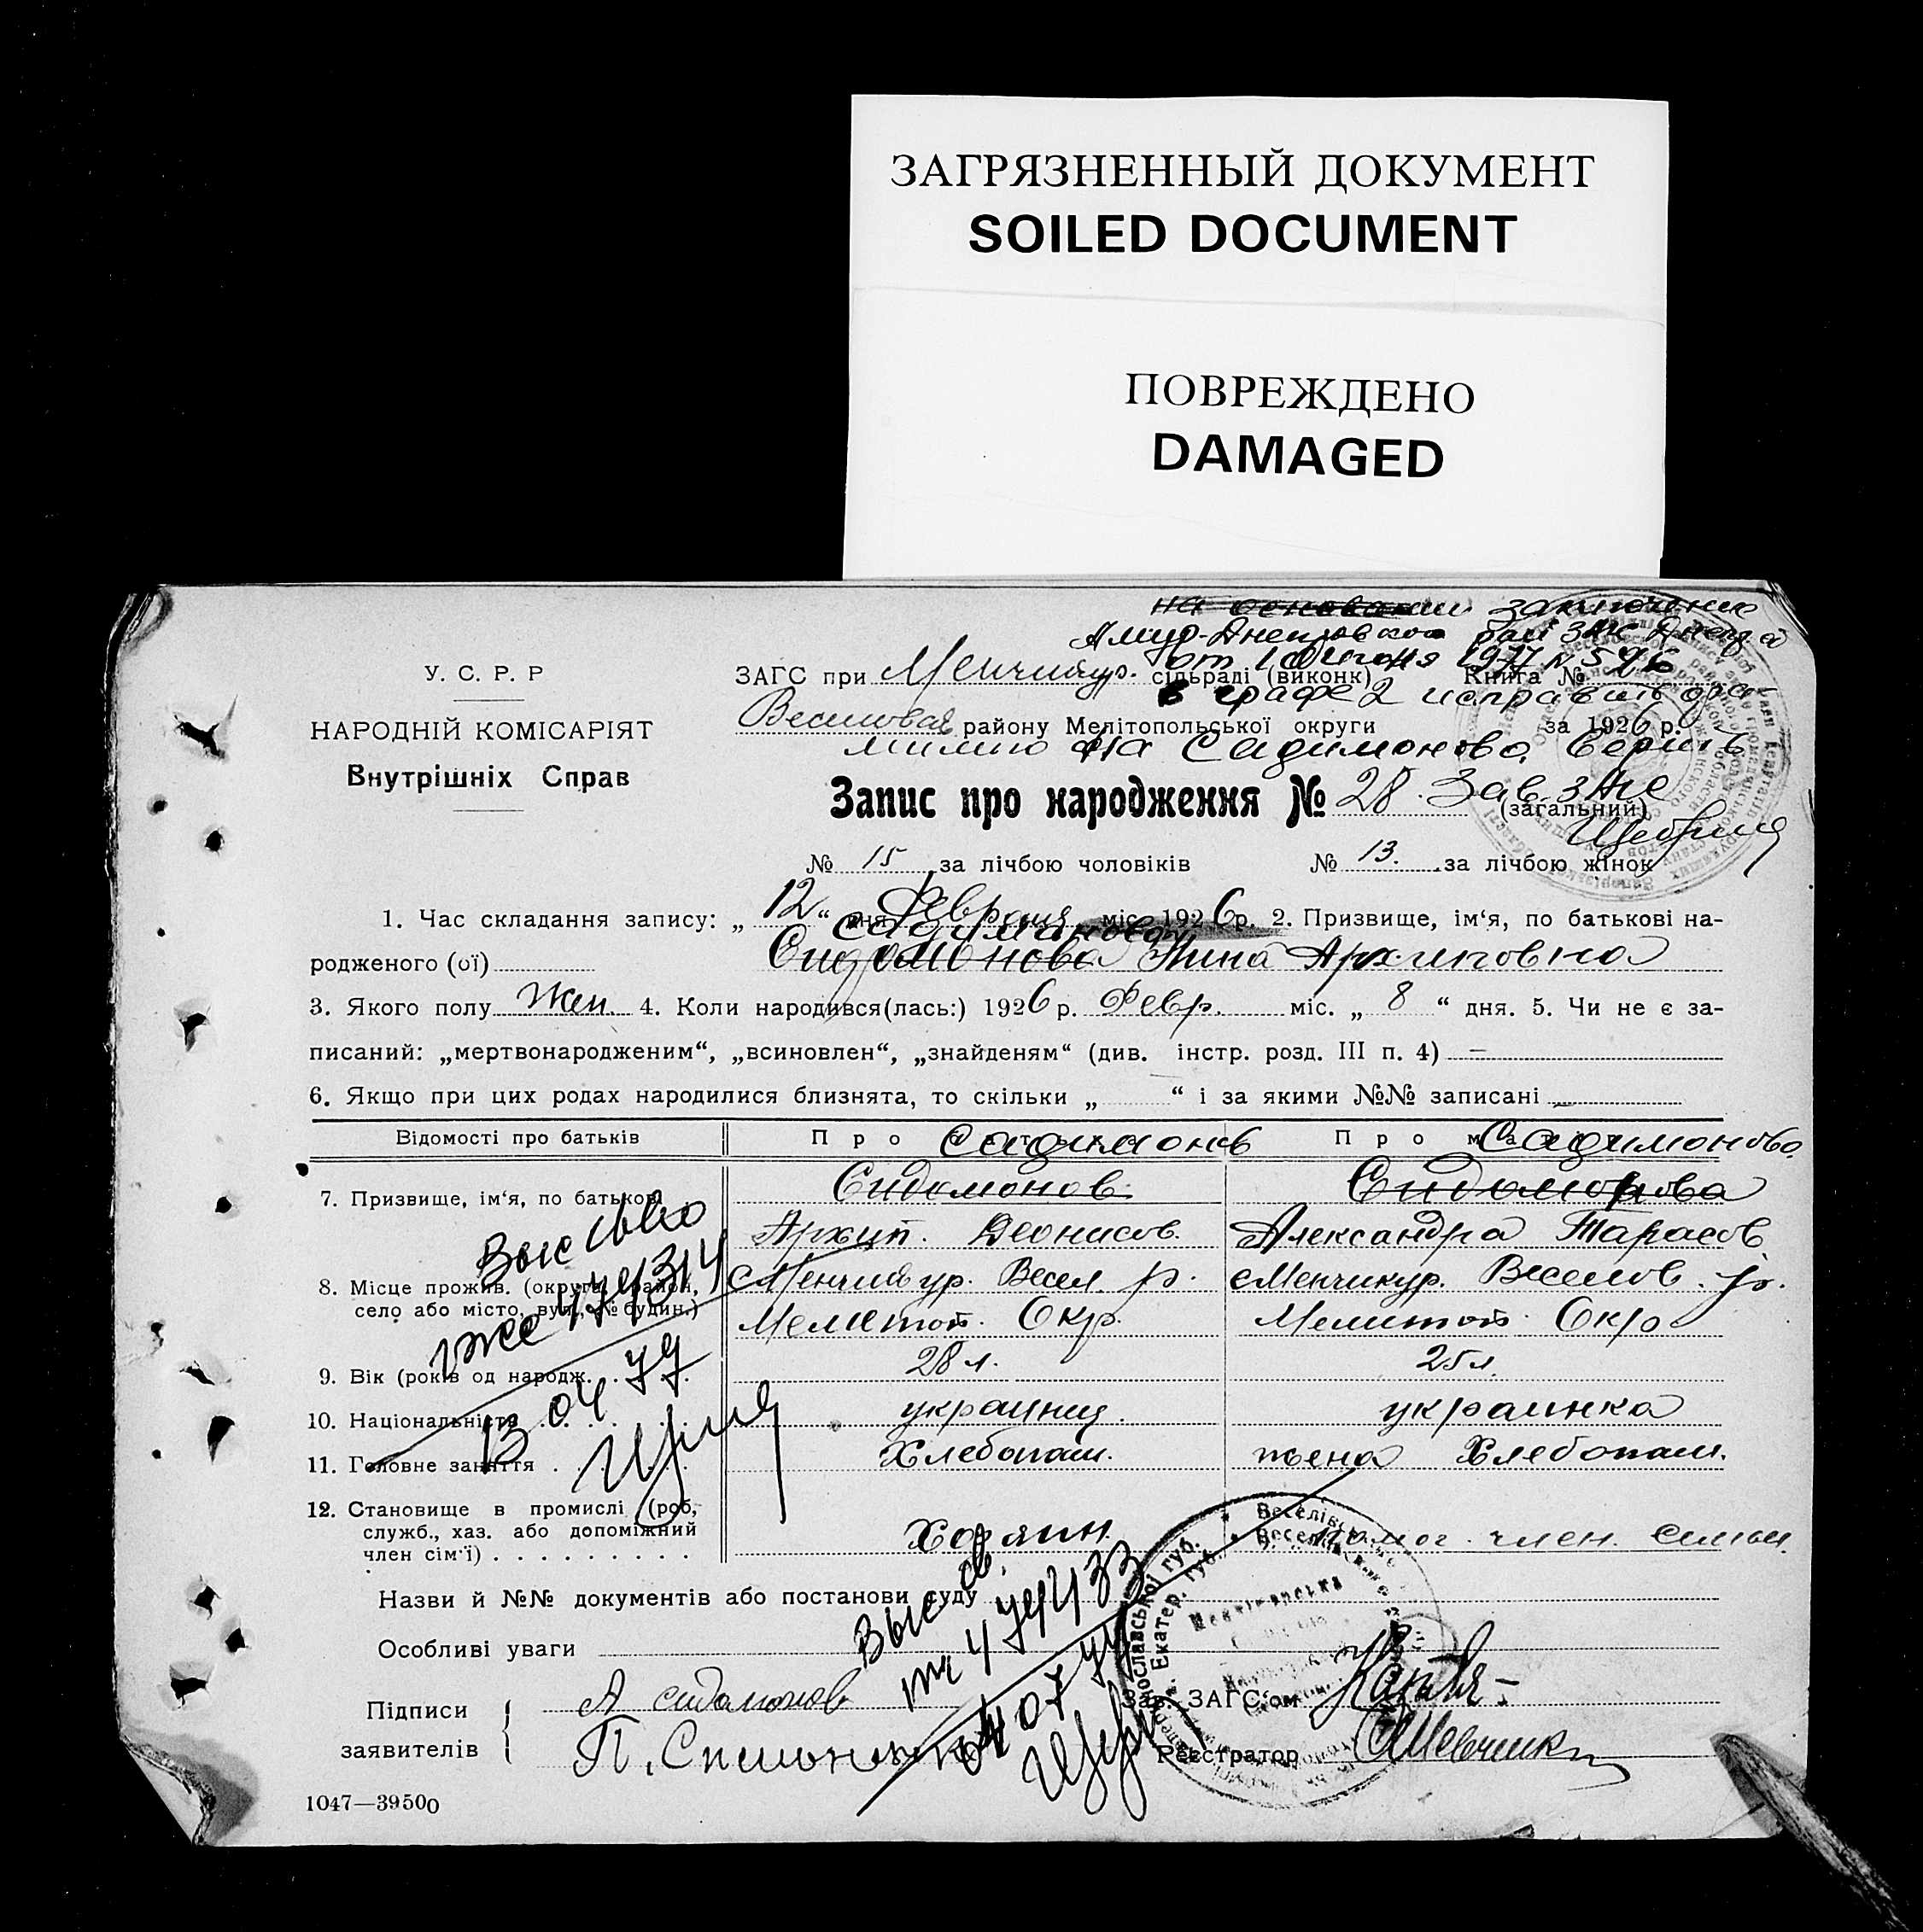 ЗАГРЯЗНЕННЫЙ ДОКУМЕНТ
SOILED DOCUMENT
ПОВРЕЖДЕНО
DAMAGED
на основании заключения
Амур-Днепровского рай ЗАГС
от 1 1977 N 596
в графе 2 исправить фа-
милию на Садимонова Верить
Зав. ЗАГС
У. С. Р. Р
НАРОДНІЙ КОМІСАРІЯТ
Внутрішніх Справ
ЗАГС при Менчикур. сільраді (виконк) Книга №
району Мелітопольської округи за 1926 р.
Запис про народження № 28. (загальний)
№ 15 за лічбою чоловіків № 13. за лічбою жінок
1. Час складання запису: „ 12 “ дня Февраля міс. 1926 р. 2. Призвище, ім‘я, по батькові на-
Садимонова
родженого (ої) Сидомонова Нина Архиповна
3. Якого полу Жен. 4. Коли народився(лась:) 1926 р. Февр. міс. „ 8 “ дня. 5. Чи не є за-
писаний: „мертвонародженим“, „всиновлен“, „знайденям“ (див. інстр. розд. III п. 4) —
6. Якщо при цих родах народилися близнята, то скільки „ “ і за якими №№ записані —
Відомості про батьків Про батька Про матір
Садимонов Садимонова
7. Призвище, ім‘я, по батькові Сидомонов Сидомонова
Архип. Деонисов. Александра Тарасов
8. Місце прожив. (округа, район, Менчикур. Весел. р. Менчикур. Веселов. р.
село або місто, вул., № будин.) Мелитоп. Окр. Мелитоп. Окр
9. Вік (років од народж. 28 л. 25 л.
10. Національність украинец. украинка
11. Головне заняття Хлебопаш. жена Хлебопаш.
12. Становище в промислі (роб, Хозяин. помог. член. семьи.
служб., хаз. або допоміжний
член сім‘ї)
13 04 79
Назви й №№ документів або постанови суду
Особливі уваги
04 07 77
Підписи заявителів
А сидомонов
Зав. ЗАГС‘ом
Реєстратор
1047—39500